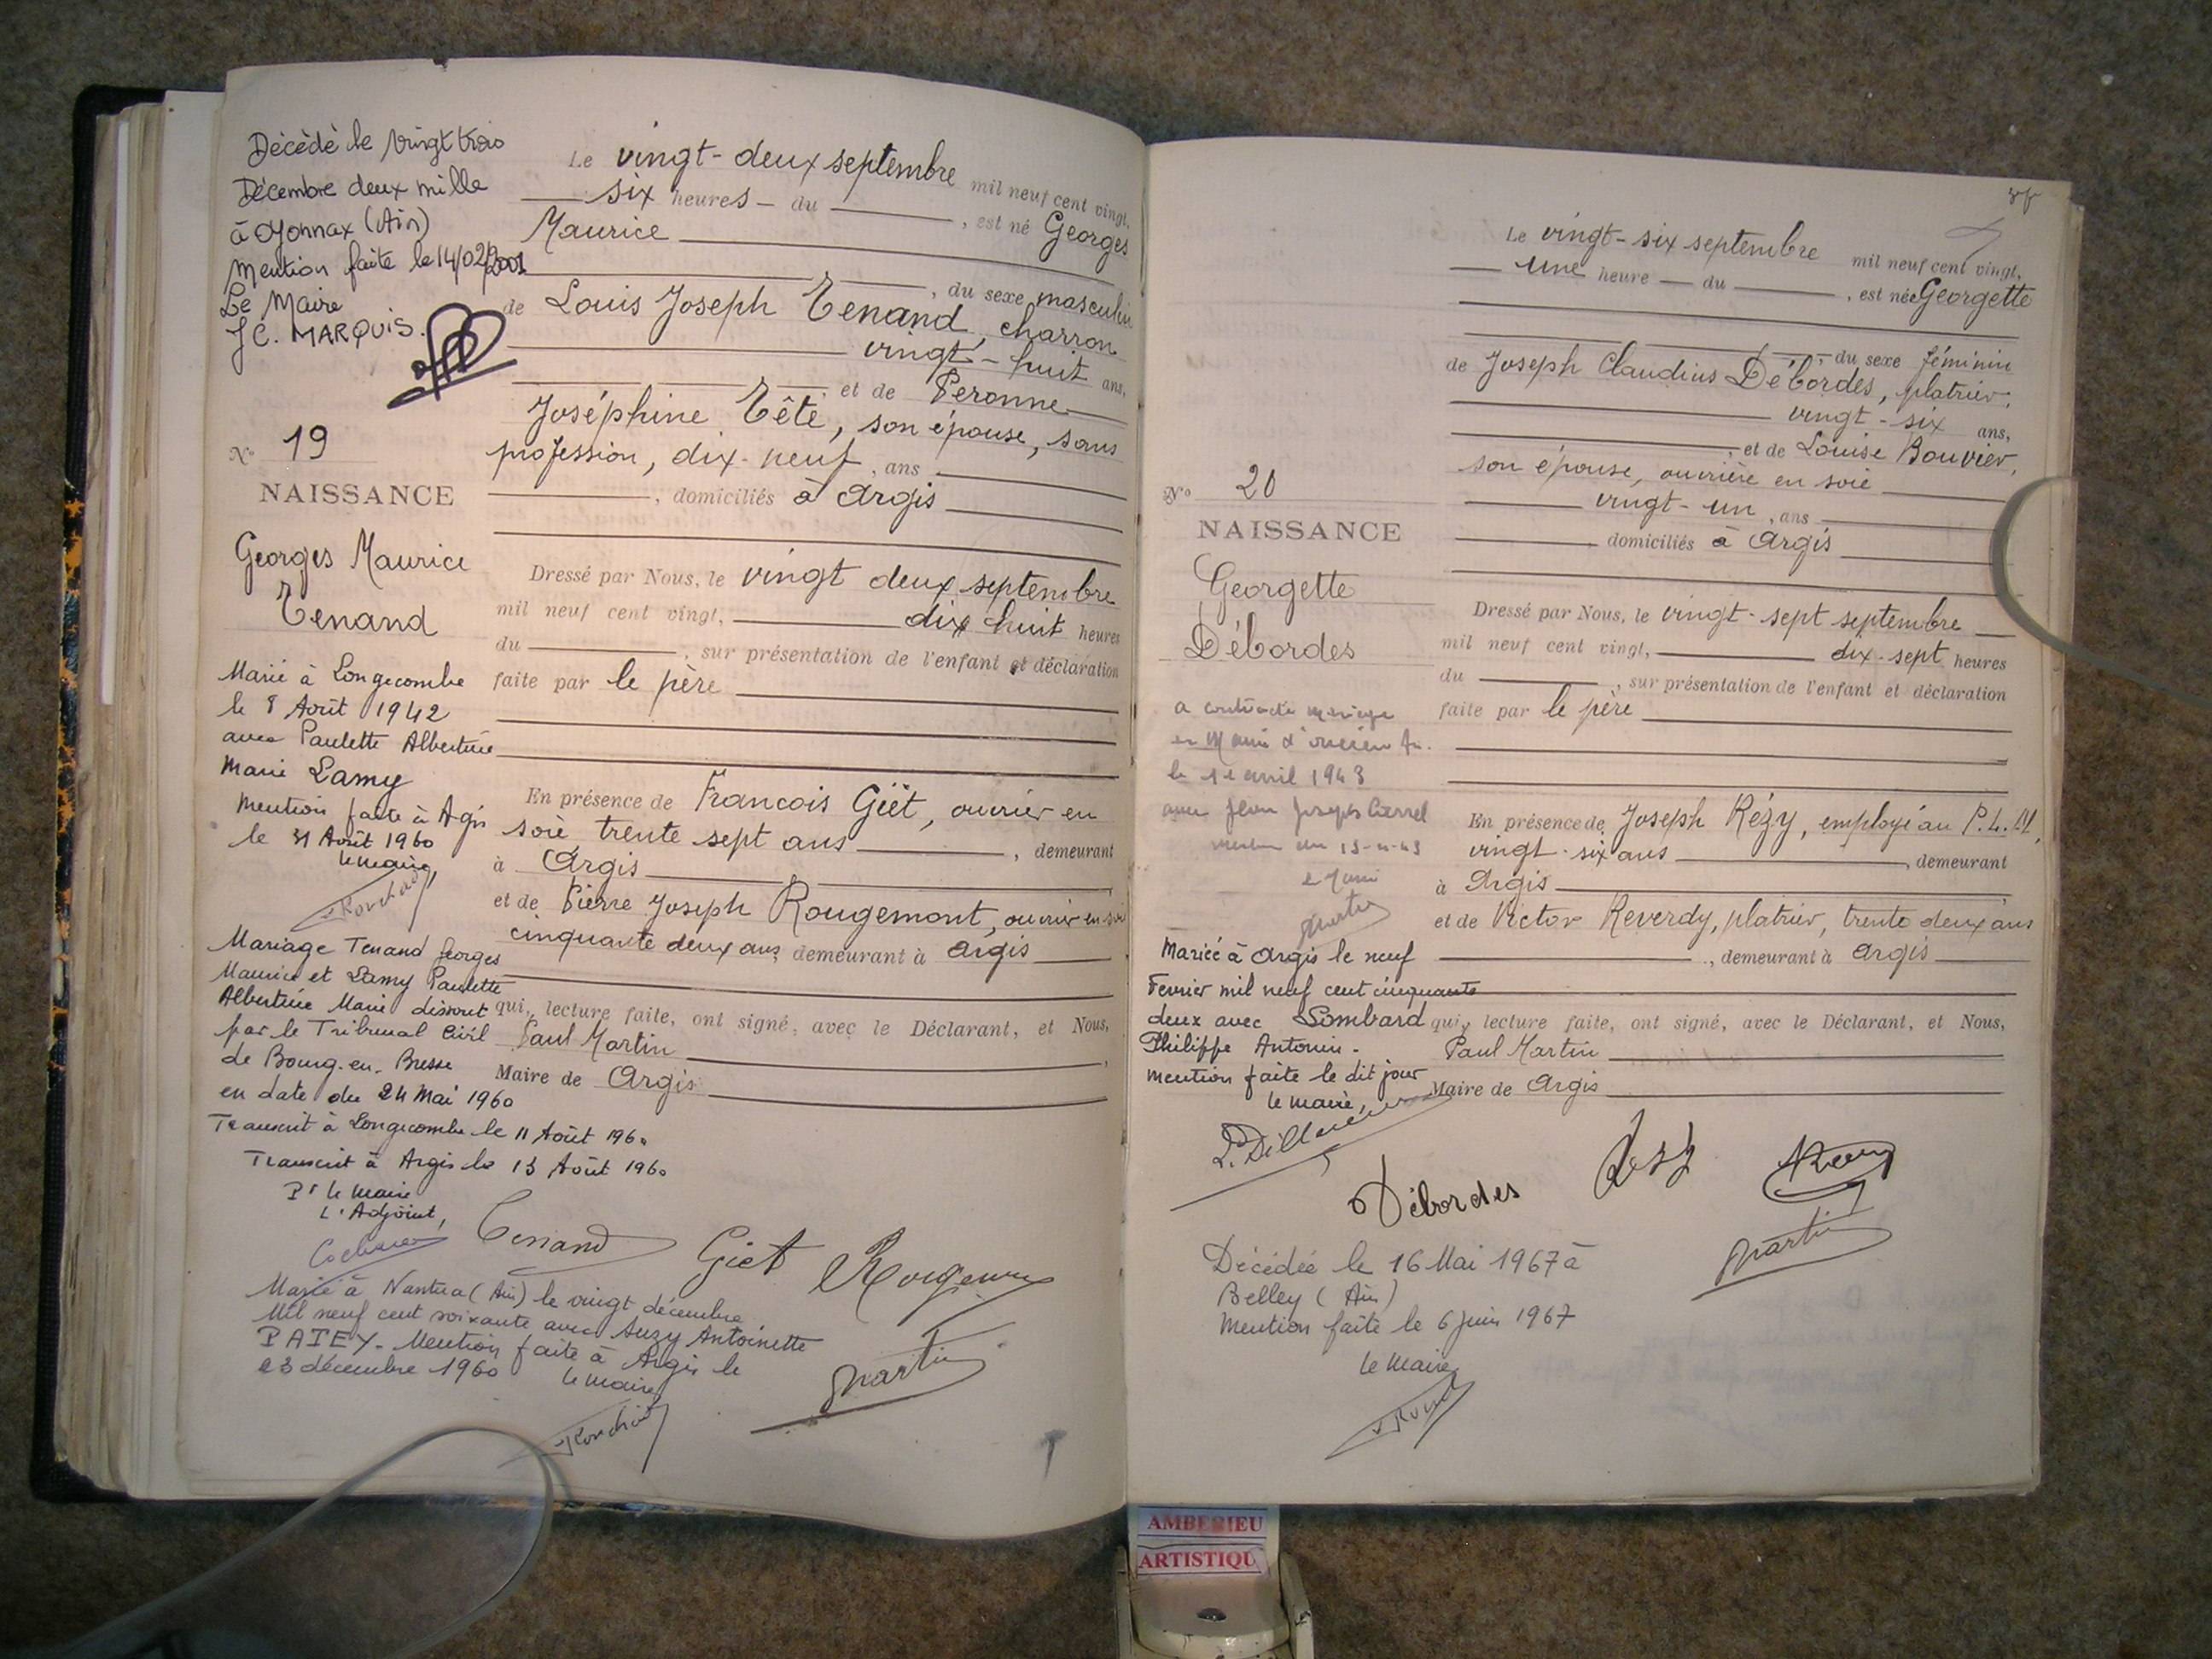 Décédé le vingt trois
Décembre deux mille
à Oyonnax (Ain)
Mention faite le 14/02/2001
Le Maire
J C. MARQUIS.
N° 19
NAISSANCE
Georges Maurice
Tenand
Marié à Longecombe
le 8 Août 1942
avec Paulette Albertine
Marie Lamy
Mention faite à Argis
le 31 Août 1960
le maire,
Mariage Tenand Georges
Maurice et Lamy Paulette
Albertine Marie dissout
par le Tribunal Civil
de Bourg-en-Bresse
en date du 24 Mai 1960
Transcrit à Longecombe le 11 Août 1960
Transcrit à Argis le 13 Août 1960
Pr le Maire
L'Adjoint,
Le vingt-deux septembre mil neuf cent vingt,
six heures - du , est né Georges
Maurice
, du sexe masculin
de Louis Joseph Tenand, charron
vingt-huit ans,
et de Peronne
Joséphine Tête, son épouse, sans
profession, dix-neuf, ans
, domiciliés à Argis
Dressé par Nous, le vingt deux septembre
mil neuf cent vingt, dix huit heures
du , sur présentation de l'enfant et déclaration
faite par le père
En présence de Francois Giét, ouvrier en
soie trente sept ans , demeurant
à Argis
et de Pierre Joseph Rougemont, ouvrier en soie
cinquante deux ans, demeurant à Argis
qui, lecture faite, ont signé, avec le Déclarant, et Nous,
Paul Martin
Maire de Argis
Tenand Giet Rougemont
Marié à Nantua (Ain) le vingt décembre
Mil neuf cent soixante avec Suzy Antoinette
PATEY - Mention faite à Argis le
23 décembre 1960 le maire
Martin
N° 20
NAISSANCE
Georgette
Débordes
a contracté mariage
en Mairie d'
le 1 avril 1943
avec Jean Joseph
le Maire
Martin
Mariée à Argis le neuf
Fevrier mil neuf cent cinquante
deux avec Lombard
Philippe Antonin -
Mention faite le dit jour
le maire,
Le vingt-six septembre mil neuf cent vingt,
une heure - du , est née Georgette
, du sexe féminin
de Joseph Claudius Débordes, platrier,
vingt-six ans,
, et de Louise Bouvier,
son épouse, ouvrière en soie
vingt-un, ans
domiciliés à Argis
Dressé par Nous, le vingt-sept septembre
mil neuf cent vingt, dix-sept heures
du , sur présentation de l'enfant et déclaration
faite par le père
En présence de Joseph Rézy, employé au P.L.M,
vingt-six ans , demeurant
à Argis
et de Victor Reverdy, platrier, trente deux ans
, demeurant à Argis
qui, lecture faite, ont signé, avec le Déclarant, et Nous,
Paul Martin
Maire de Argis
Débordes
Martin
Décédée le 16 Mai 1967 à
Belley (Ain)
Mention faite le 6 Juin 1967
le Maire
AMBERIEU
ARTISTIQU